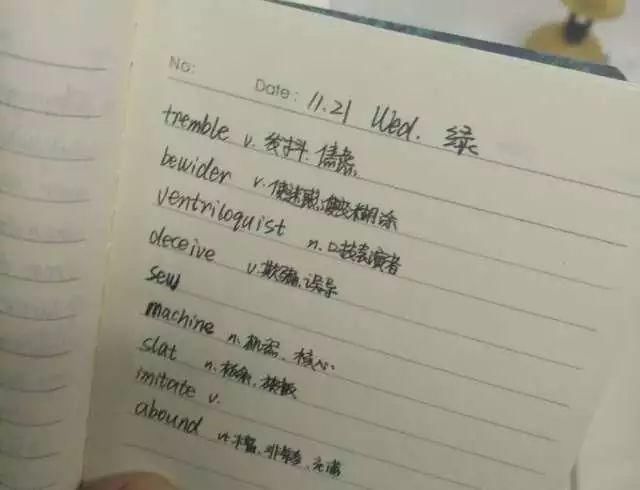 No:
Date: 11.21 Wed. 绿
tremble v. 发抖.焦虑.
bewider v. 使迷惑,使糊涂
ventriloquist n.口技表演者
deceive v.欺骗.误导
sew
machine n.机器.核心.
slat n.板条.
imitate v.
abound vi.丰富.非常多.充满